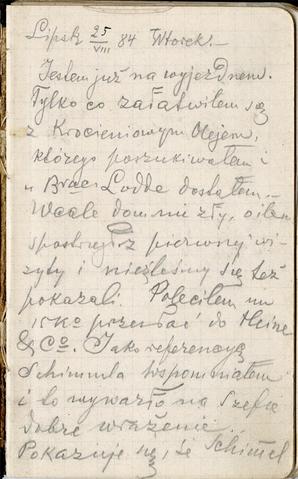 Lipsk 25/VIII 84 Wtorek.
Jestem już na wyjezdnem.
Tylko co załatwiłem się
z Krocieniowym Olejem,
którego poszukiwałem i
u Braci Lodde dostałem.
Wcale dom nie zły, o ile
spostrzegł z pierwszej wi-
zyty i nieźleśmy się też
pokazali. Poleciłem mu
15 Ko przesłać do Heine
& Co. Jako referencyę
Schimmla wspomniałem
i to wywarło na Szefie
dobre wrażenie.
Pokazuje się, że Schimel